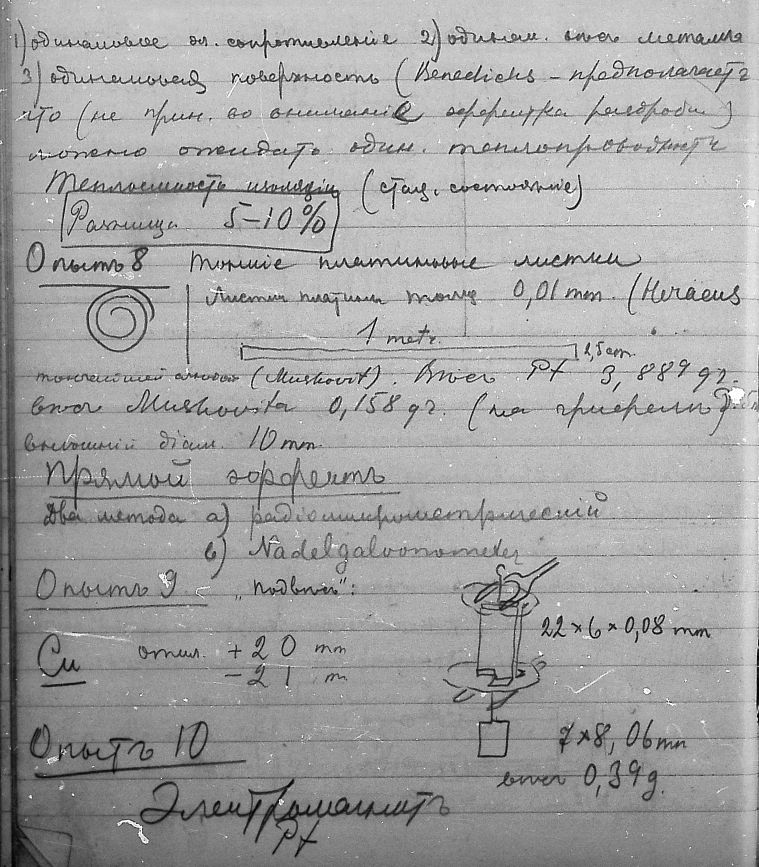 1) одинаковое эл. сопротивленіе 2) одинак. вѣсъ металла
3) одинаковая поверхность (Benedicks – предполагаетъ
что (не прин. во вниманіе эффекта
можно ожидать один. теплопроводность
Теплоемкость изоляціи (стац. состояніе)
Разница 5–10%
Опытъ 8 тонкіе платиновые листки
Листки платины толщ 0,01 mm. (Heraeus
1 metr.
2,5 cm.
тончайшей слюды (Muskovit). Вѣсъ Pt 3,889 gr.
вѣсъ Muskovita 0,158 gr. (на
внѣшній діам. 10 mm.
Прямой эффектъ
Два метода a) радіомикрометрическій
b) Nadelgalvonometer
Опытъ 9 „подвѣсъ":
22 × 6 × 0,08 mm
Cu откл. + 20 mm
– 21 m
Опытъ 10
7 × 8,06 mm
вѣсъ 0,39 g.
Электромагнитъ
Pt